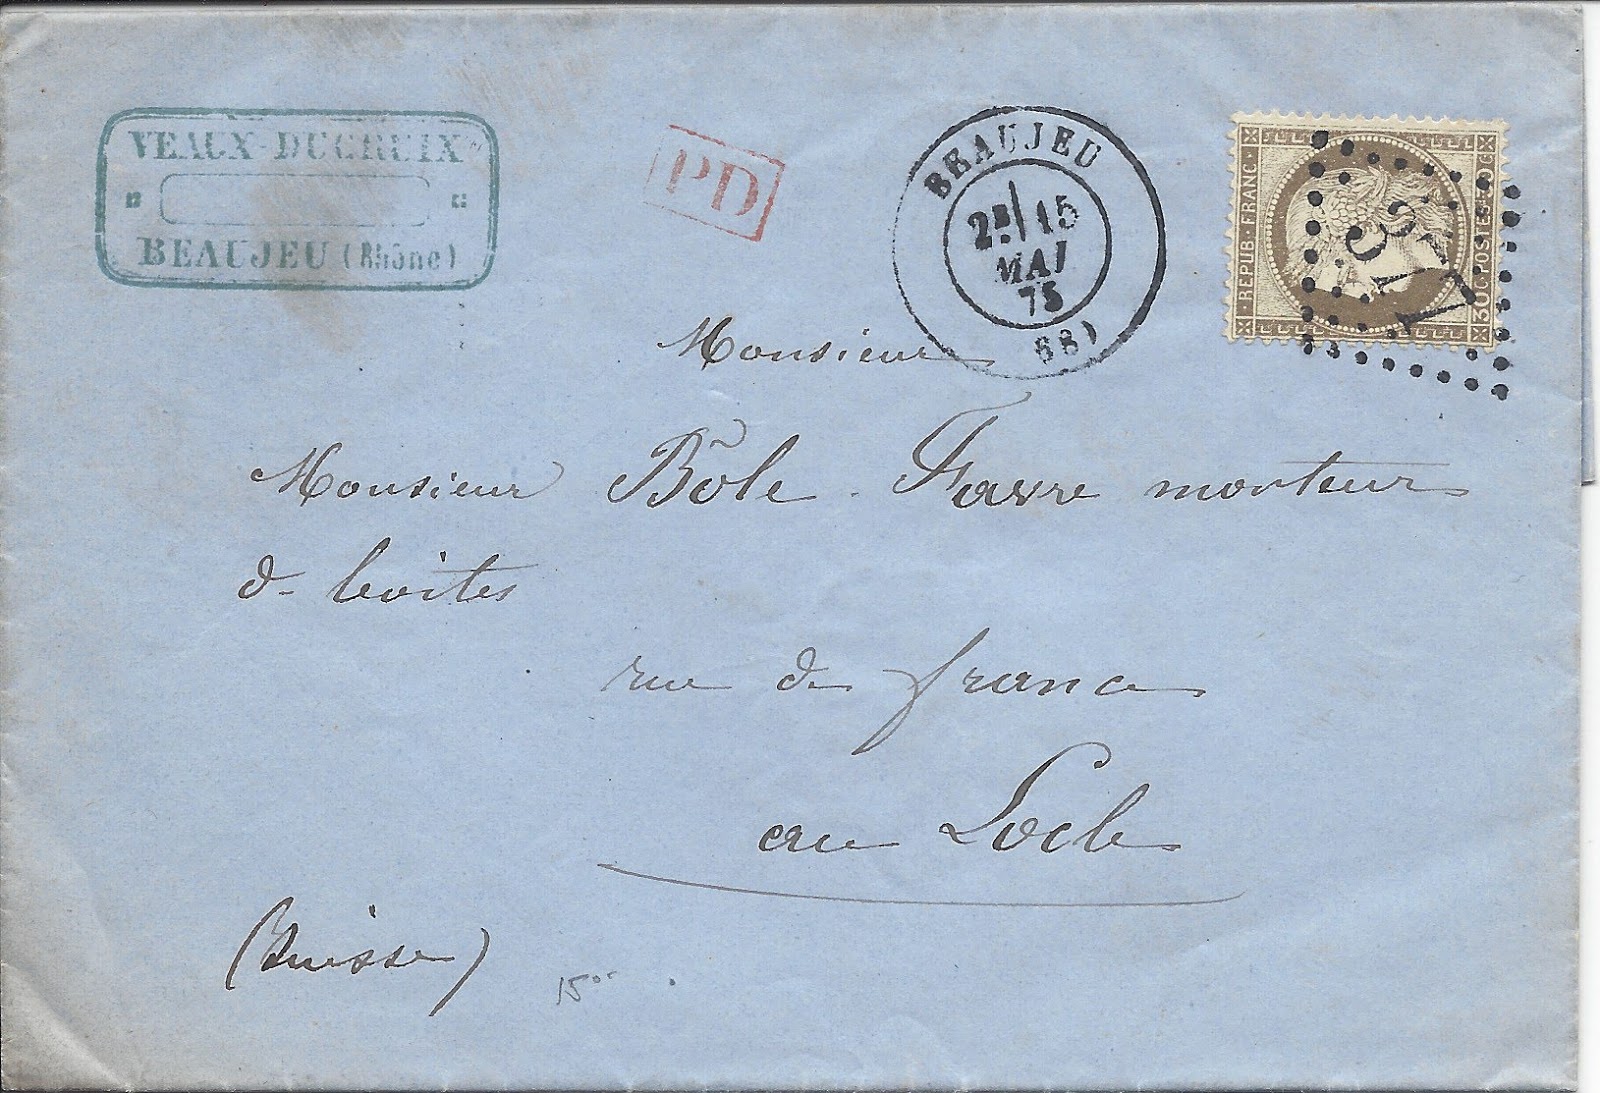 VEAUX-DUCRUIX
BEAUJEU (Rhône)
PD
BEAUJEU
2E 15
MAI
75
(68)
REPUB. FRANC.
30 C. POSTES 30 C.
377
Monsieur
Monsieur Bôle-Favre monteur
de boites
rue de france
au Locle
(Suisse)
15